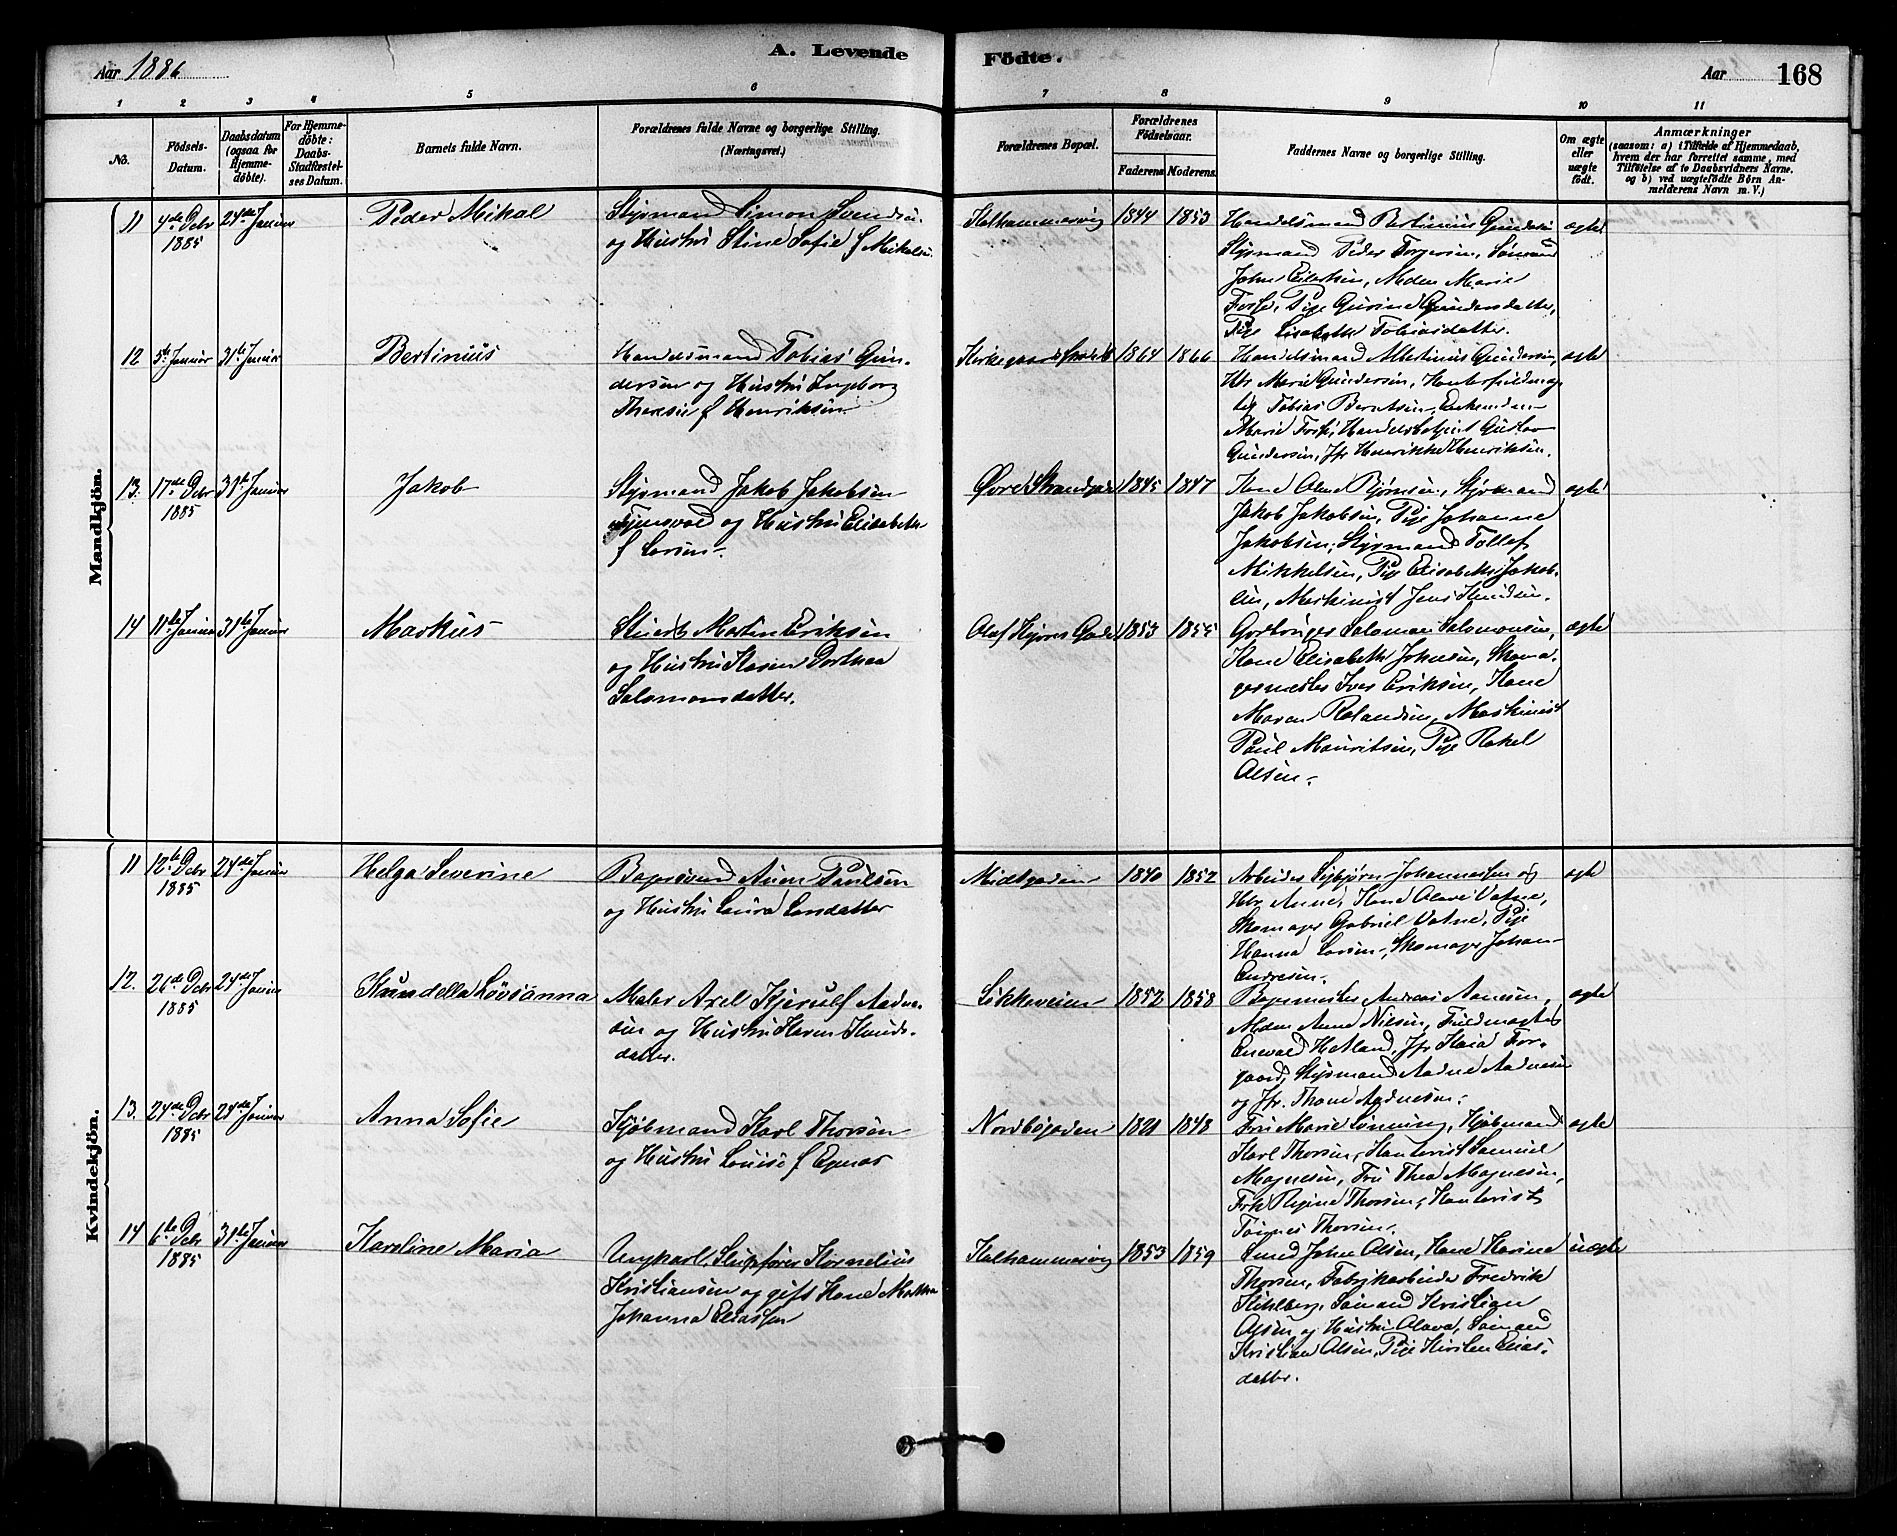 A. Levende Födte.
Aar 1886
Aar 168
1 2 3 4 5 6 7 8 9 10 11
No.
Födsels-Datum.
Daabsdatum (ogsaa for Hjemme-döbte).
For Hjemme-döbte: Daabs-Stadfæstel-ses Datum.
Barnets fulde Navn.
Forældrenes fulde Navne og borgerlige Stilling. (Næringsvei.)
Forældrenes Bopæl.
Forældrenes Födselsaar.
Faderens. Moderens.
Faddernes Navne og borgerlige Stilling.
Om ægte eller uægte födt.
Anmærkninger
(saasom: a) i Tilfælde af Hjemmedaab, hvem der har forrettet samme, med Tilföielse af to Daabsvidners Navne, og b) ved uægtefödte Börn An-melderens Navn m. V.)
Mandkjön.
11 4de Dcbr 1885 24de Januar Peder Mikal
Styrmand Simon Svendsen
og Hustru Stine Sofie f Mikalsen
Kalhammervig 1844 1853
Handelsmand Bertinius Gundersen
Styrmand Peder Torgersen, Sömand
John Eilertsen, Madm Marie
Fosse, Pige Gurine Gundersdatter,
Pige Lisabeth Tobiasdatter.
ægte
12 5te Januar 31te Januar Bertinius
Handelsmand Tobias Gun-
dersen og Hustru Ingeborg
Theresie f Henriksen
1864 1866
Handelsmand Albertinius Gundersen,
Hstr Marie Gundersen,
Tobias Berntsen, Enkemadm
Marie Fosse, Handelsbetjent Gustav
Gundersen, Jfr Henrikke Henriksen.
ægte
13. 17de Dcbr 1885 31te Januar Jakob
Styrmand Jakob Jakobsen
og Hustru Elisabeth
f Larsen
Øvre Strandgade 1845 1847
Kone Olene Bjørnsen, Styrmand
Jakob Jakobsen, Pige Johanne
Jakobsen, Styrmand Tollef
Mikkelsen, Pige Elisabeth Jakob-
sen, Maskinist Jens Knudsen.
ægte
14 11te Januar 31te Januar Markus
Stuert Martin Eriksen
og Hustru Karen Dorthea
Salomonsdatter.
Olaf Kyrres Gade 1853 1855
Salomon Salomonsen,
Kone Elisabeth Johnsen, Skoma-
germester Iver Eriksen, Kone
Maren Rolandsen, Maskinist
Paul Mauritsen, Pige Rakel
Olsen.
ægte
Kvindekjön.
11 12te Dcbr 1885 24de Januar Helga Severine
Bagersvend Paulsen
og Hustru Laura Larsdatter
Midtgaden 1840 1852
Arbeider Sigbjörn Johannessen og
Hstr Anne, Kone Olave Vatne,
Skomager Gabriel Vatne, Pige
Hanna Larsen, Skomager Johan
Andresen.
ægte
12. 26de Dcbr 1885 24de Januar Lovisanna
Maler Axel Kjerulf Aadne-
sen og Hustru Karen Knuds-
datter.
Løkkeveien 1852 1858
Bagermester Andreas Aanesen,
Madm Anne Nielsen, Fuldmægtig
Enevald Hetland, Jfr Kaia Tor-
gaard, Styrmand Aadne Aadnesen
og Jfr. Thone Aadnesen.
ægte
13. 24de Dcbr 1885 24de Januar Anna Sofie
Kjøbmand Karl Thorsen
og Hustru Louise f
Nordbøgaden 1848
Fru Marie Lønning, Kjøbmand
Karl Thorsen, Kontorist Samuel
Magnesen, Fru Thea Magnesen,
Frk Regine Thorsen, Kontorist
Tønnes Thorsen.
ægte
14 6te Dcbr 1885 31te Januar Karoline Maria
Ungkarl, Kornelius
Kristiansen og gift Kone Martha
Johanna Eliassen
Kalhammervig 1853 1859
Smed John Olsen, Kone Karine
Thorsen, Fabrikarbeider Fredrik
Kihlberg, Sömand Kristian
Olsen og Hustru Olava, Sömand
Kristian Olsen, Pige Kirsten Elias-
datter.
uægte